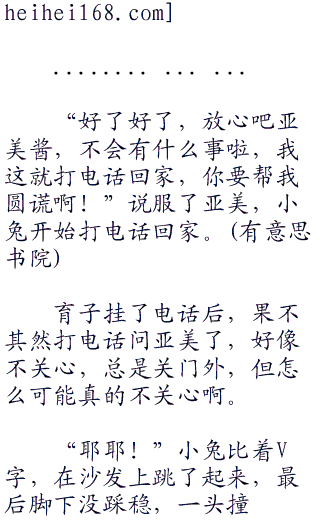 heihei168.com]
........ ... ...
“好了好了，放心吧亚
美酱，不会有什么事啦，我
这就打电话回家，你要帮我
圆谎啊！”说服了亚美，小
兔开始打电话回家。(有意思
书院)
育子挂了电话后，果不
其然打电话问亚美了，好像
不关心，总是关门外，但怎
么可能真的不关心啊。
“耶耶！”小兔比着V
字，在沙发上跳了起来，最
后脚下没踩稳，一头撞